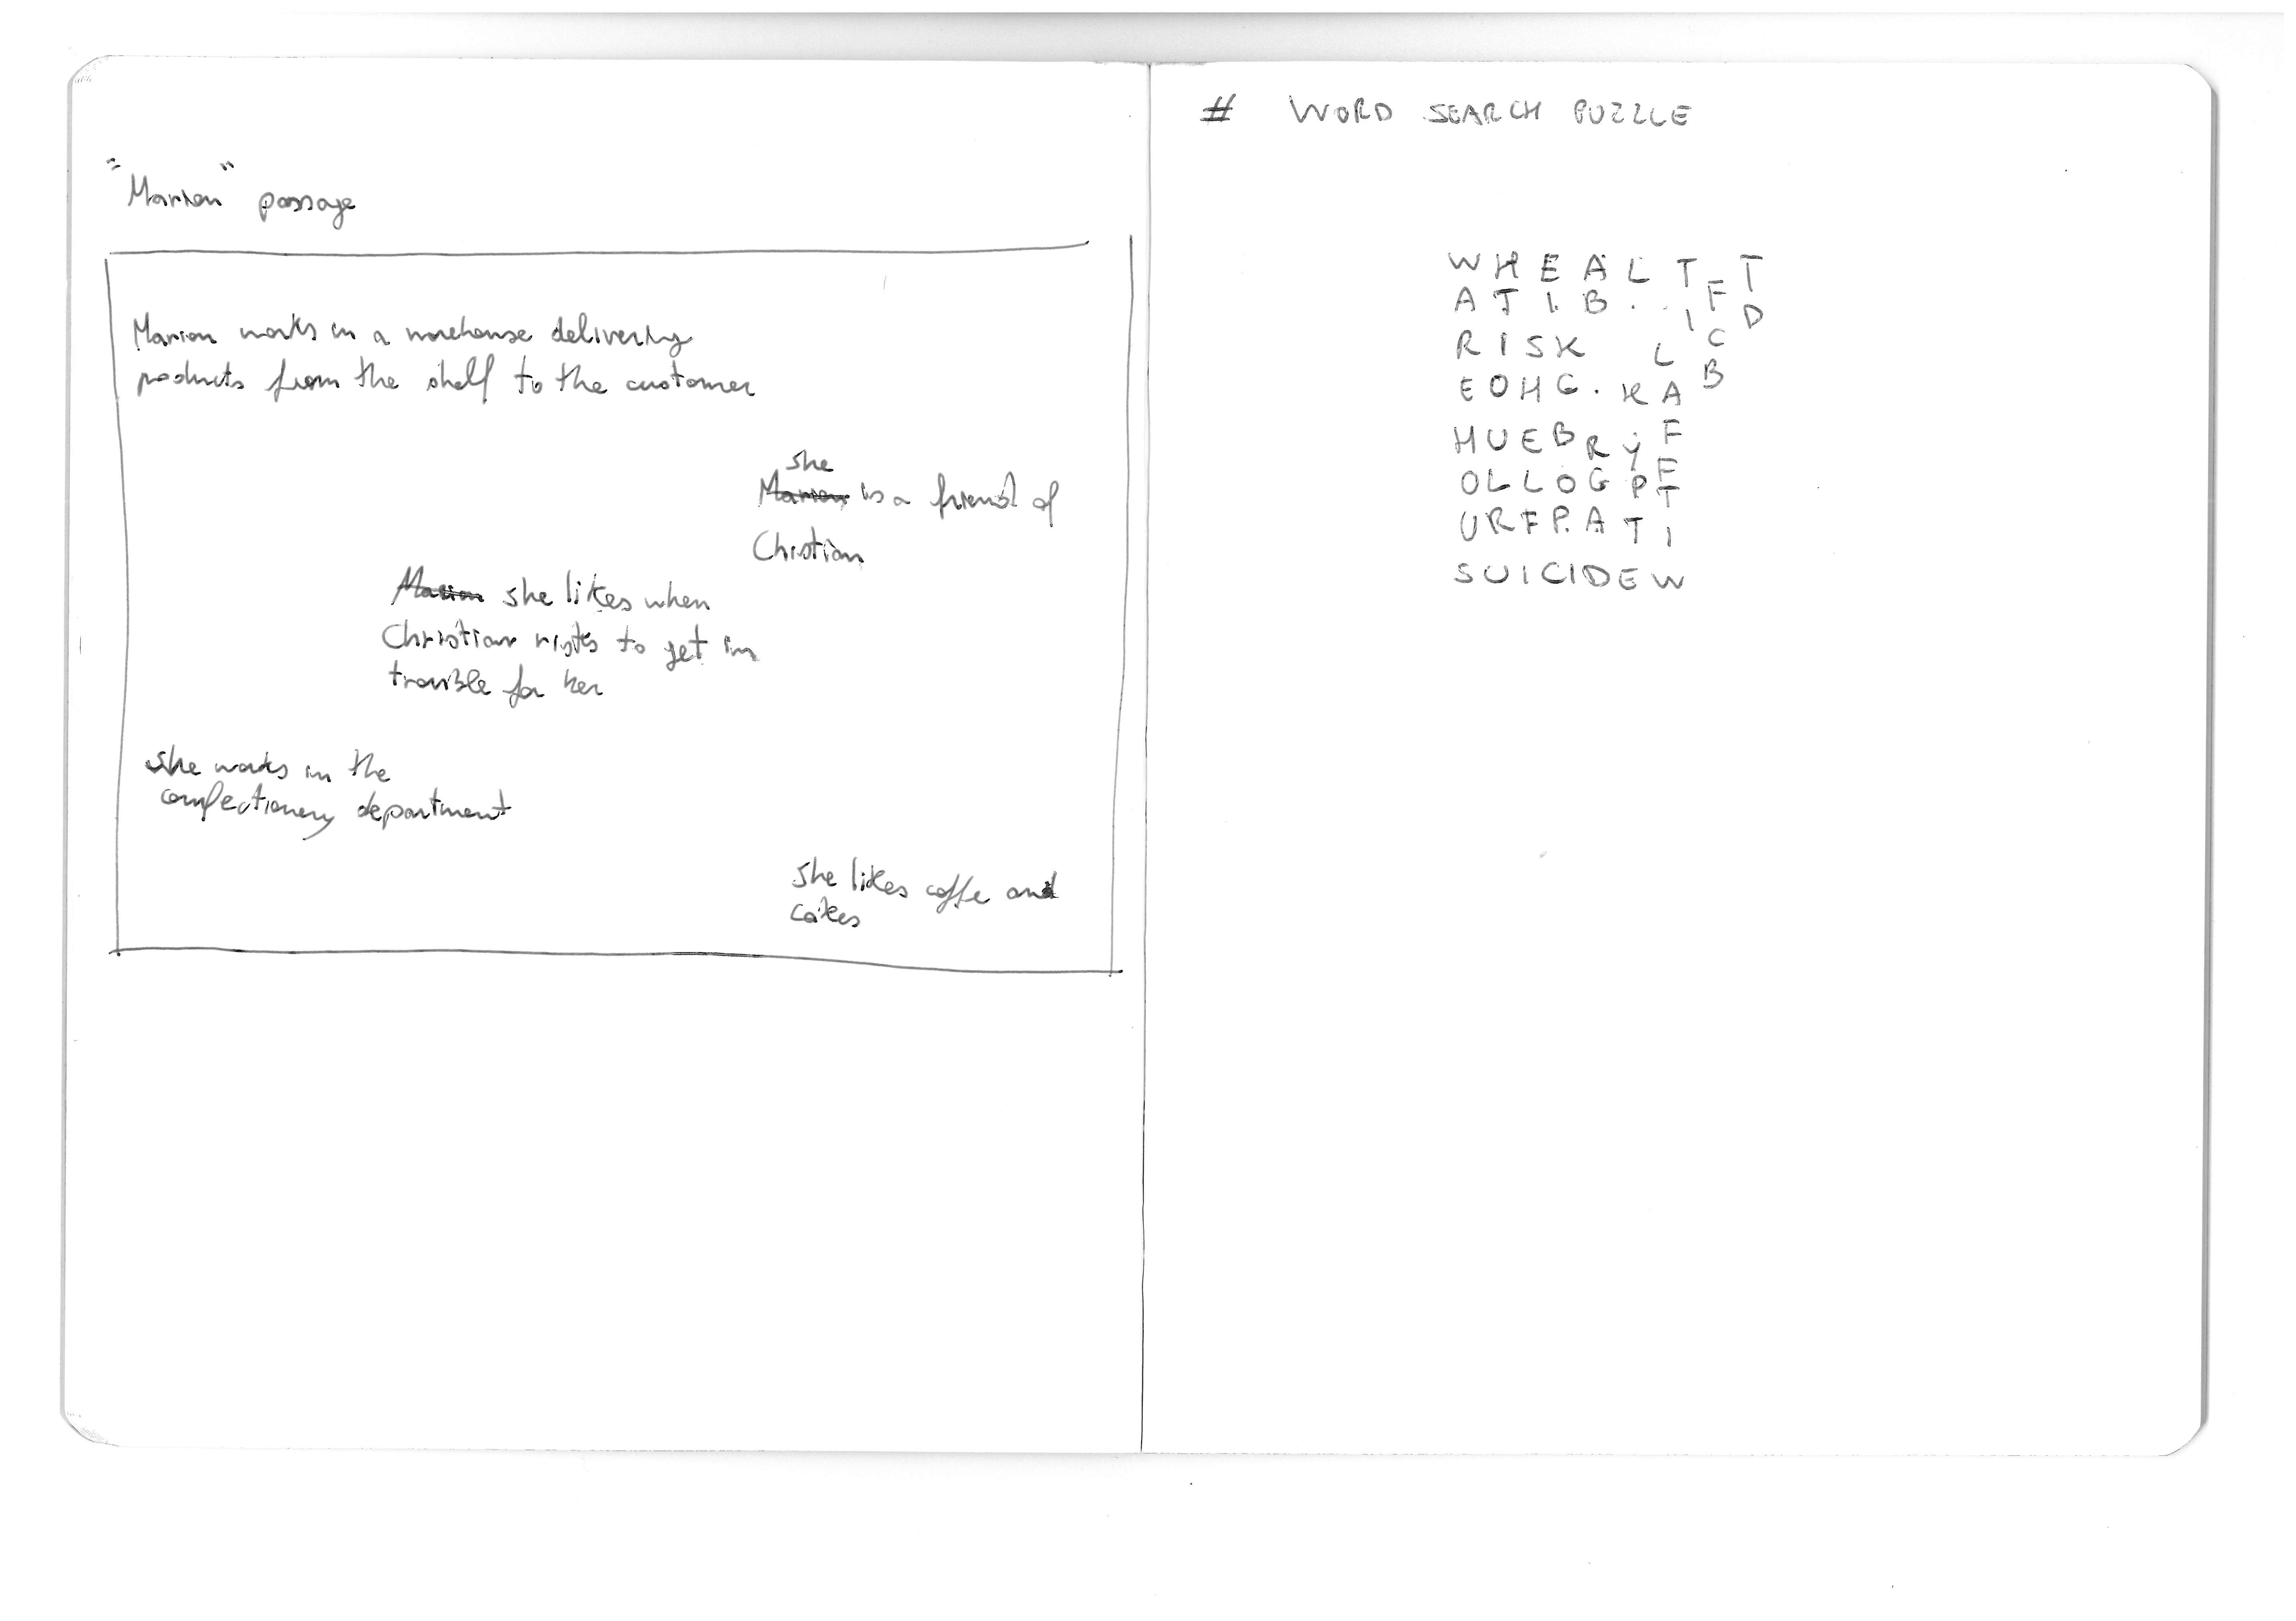 "Marion" passage
Marion works in a warehouse delivering
products from the shelf to the customer
she
Marion is a friend of
Christian
Marion she likes when
Christian risks to get in
trouble for her
she works in the
confectionery department
she likes coffe and
cakes
# WORD SEARCH PUZZLE
W H E A L T F T
A T I B . . I D
R I S K L C
E O H G . K A B
H U E B R Y F
O L L O G P F T
U R F P. A T I
S U I C I D E W